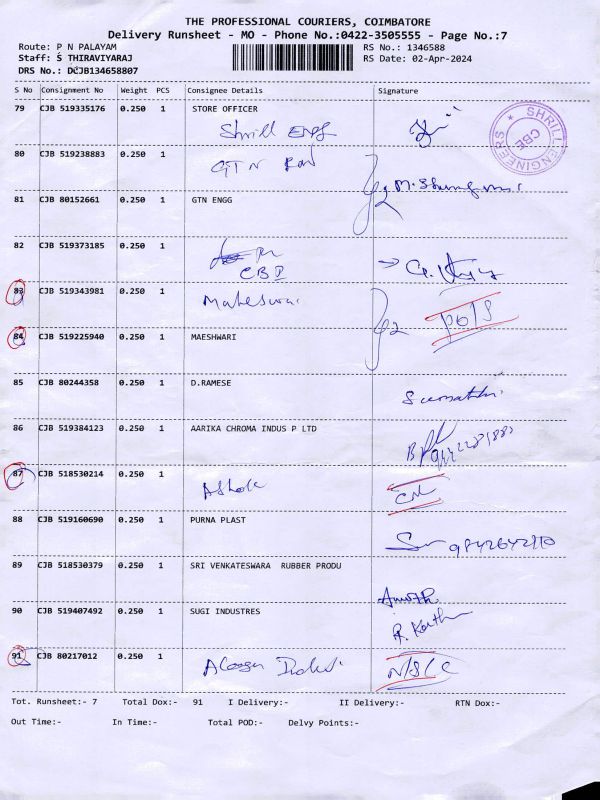 THE PROFESSIONAL COURIERS, COIMBATORE
Delivery Runsheet - MO - Phone No.:0422-3505555 - Page No.:7
Route: P N PALAYAM RS No.: 1346588
Staff: S THIRAVIYARAJ RS Date: 02-Apr-2024
DRS No.: DCJB134658807
S No Consignment No Weight PCS Consignee Details Signature
79 CJB 519335176 0.250 1 STORE OFFICER
Shrill Engg
SHRILL ENGINEERS CBE
80 CJB 519238883 0.250 1
GTN
81 CJB 80152661 0.250 1 GTN ENGG
82 CJB 519373185 0.250 1
CBE
83 CJB 519343981 0.250 1 Maheswari
84 CJB 519225940 0.250 1 MAESHWARI
85 CJB 80244358 0.250 1 D.RAMESE
86 CJB 519384123 0.250 1 AARIKA CHROMA INDUS P LTD
87 CJB 518530214 0.250 1 Ashok
88 CJB 519160690 0.250 1 PURNA PLAST
89 CJB 518530379 0.250 1 SRI VENKATESWARA RUBBER PRODU
90 CJB 519407492 0.250 1 SUGI INDUSTRES
R. Karth
91 CJB 80217012 0.250 1 N/S/C
Tot. Runsheet:- 7 Total Dox:- 91 I Delivery:- II Delivery:- RTN Dox:-
Out Time:- In Time:- Total POD:- Delvy Points:-